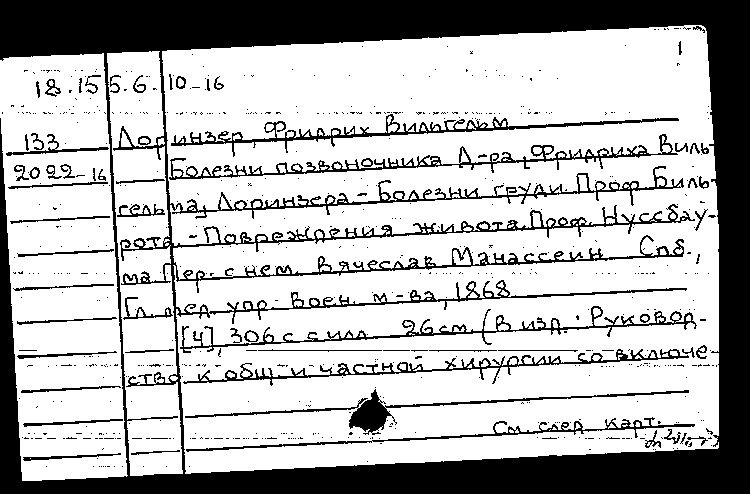 1
18.15 5.6. 10-16
133 Лоринзер, Фридрих Вильгельм
2022-16 Болезни позвоночника Д-ра, Фридриха Виль-
гельма, Лоринзера - Болезни груди. Проф. Биль-
рота. - Повреждения живота. Проф. Нуссбау-
ма Пер. с нем. Вячеслав Манассеин Спб.,
Гл. мед. упр. Воен. м-ва, 1868
[4], 306 с с илл. 26 см. (В изд.: Руковод-
ство к общ. и частной хирургии со включе-
См. след. карт.